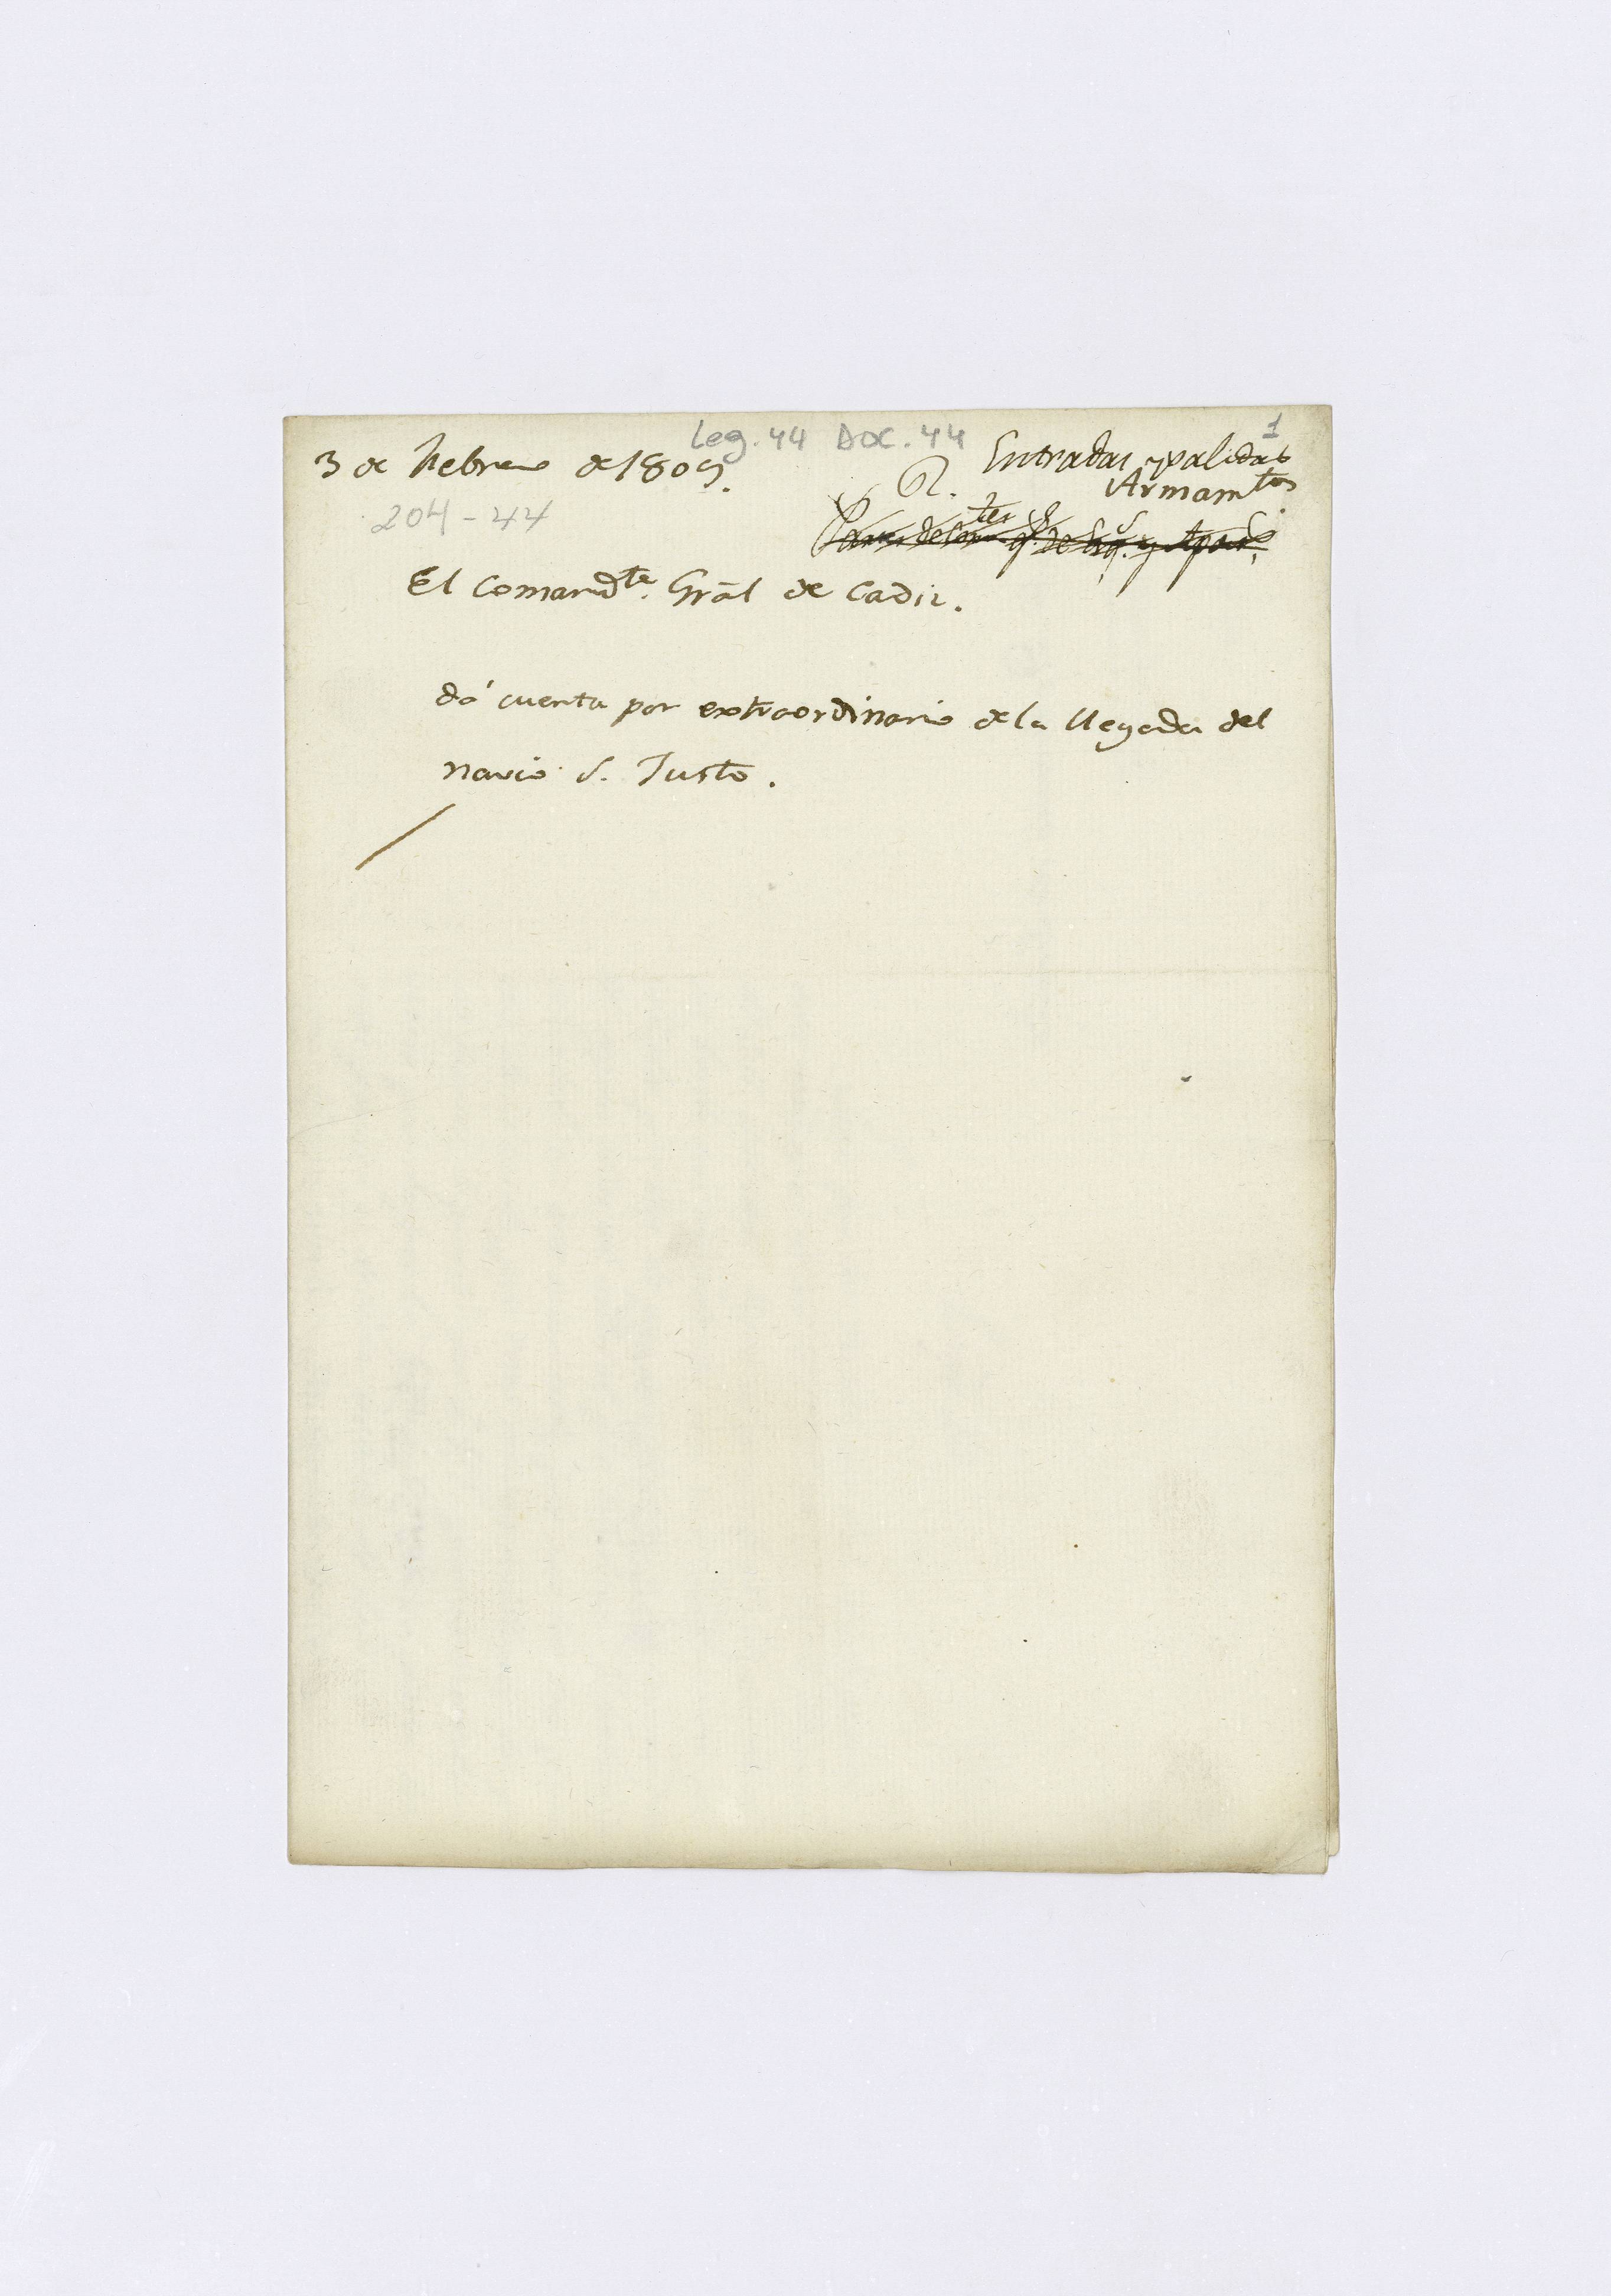 Leg. 44 Doc. 44
1
3 de Febrero de 1809.
Entradas y Salidas
R. Armamtos
204-44
El Comandte. Grāl de Cadiz.
dá cuenta por extraordinario de la llegada del
navio S. Justo.